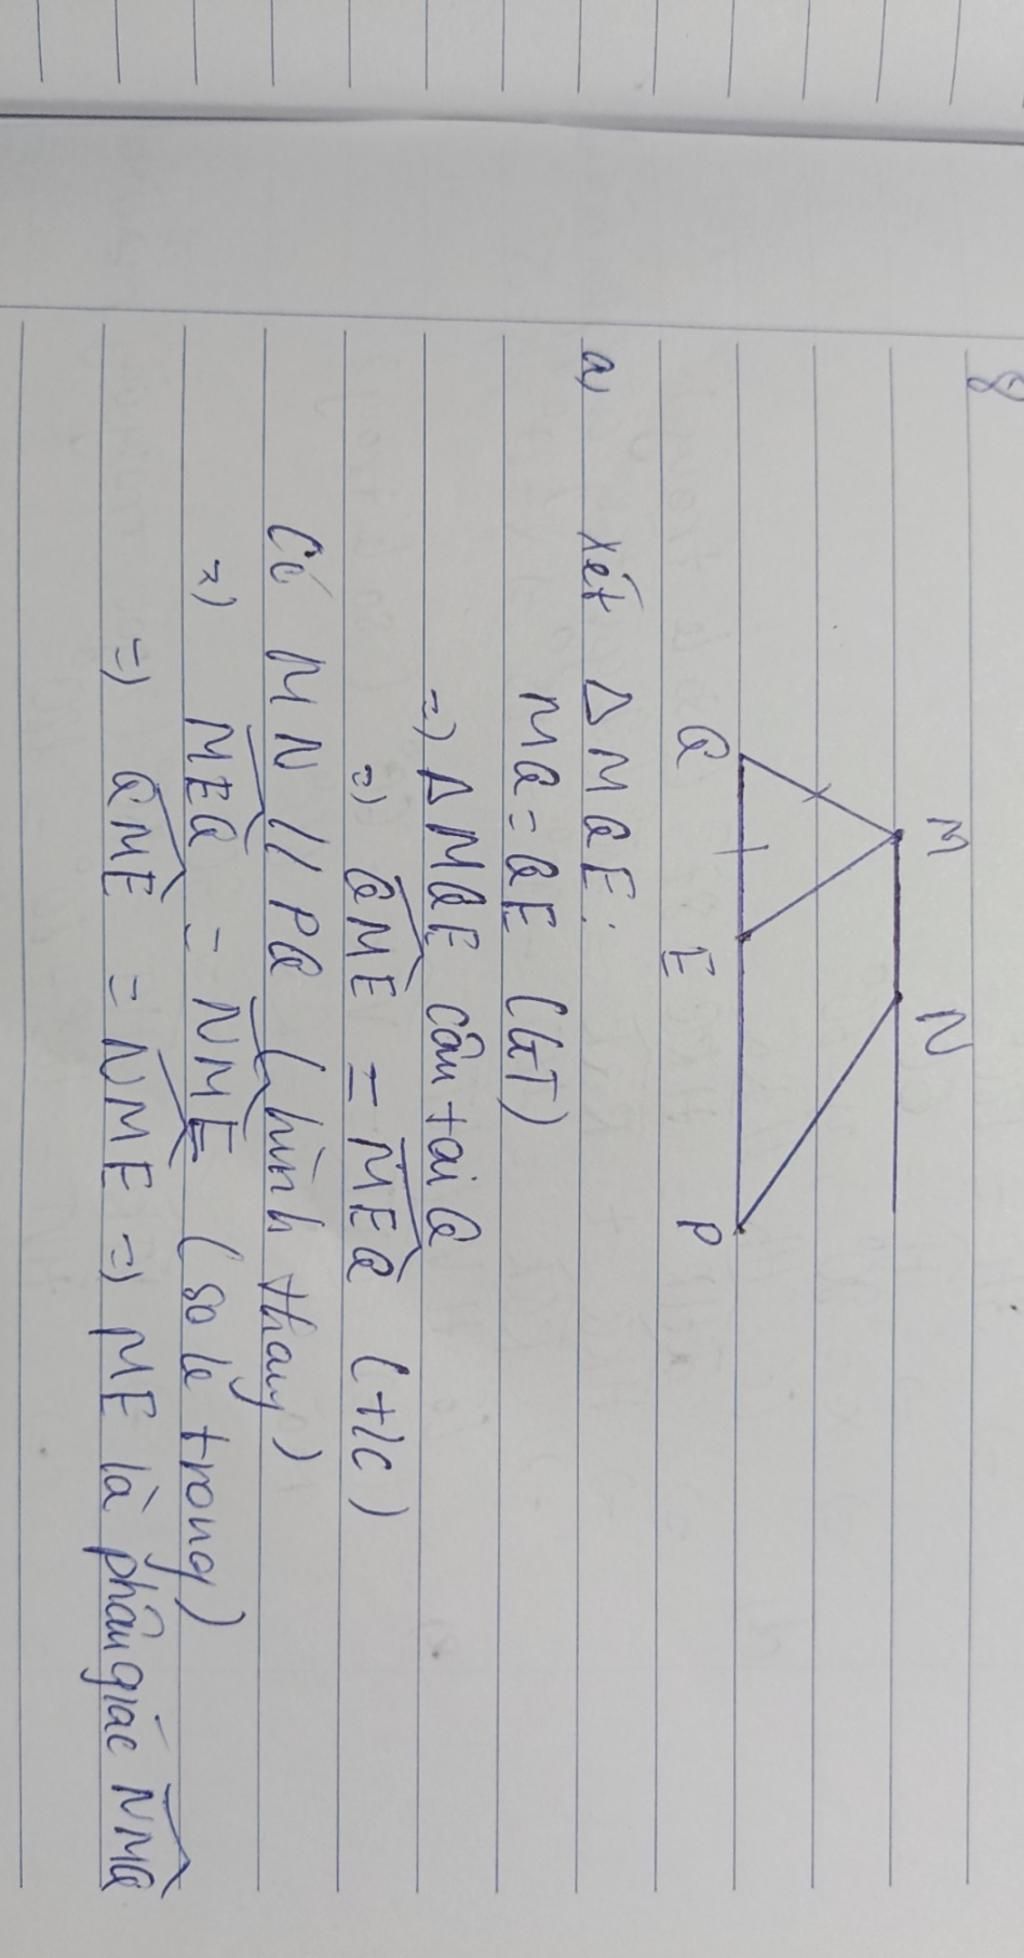 8
M
N
Q
E
P
a) Xét Δ MQE:
MQ = QE (GT)
=) Δ MQE cân tai Q
=) QME = MEQ (t/c)
Có MN // PQ (hình thang)
=) MEQ = NME (so le trong)
=) QME = NME =) ME là phân giác NMQ